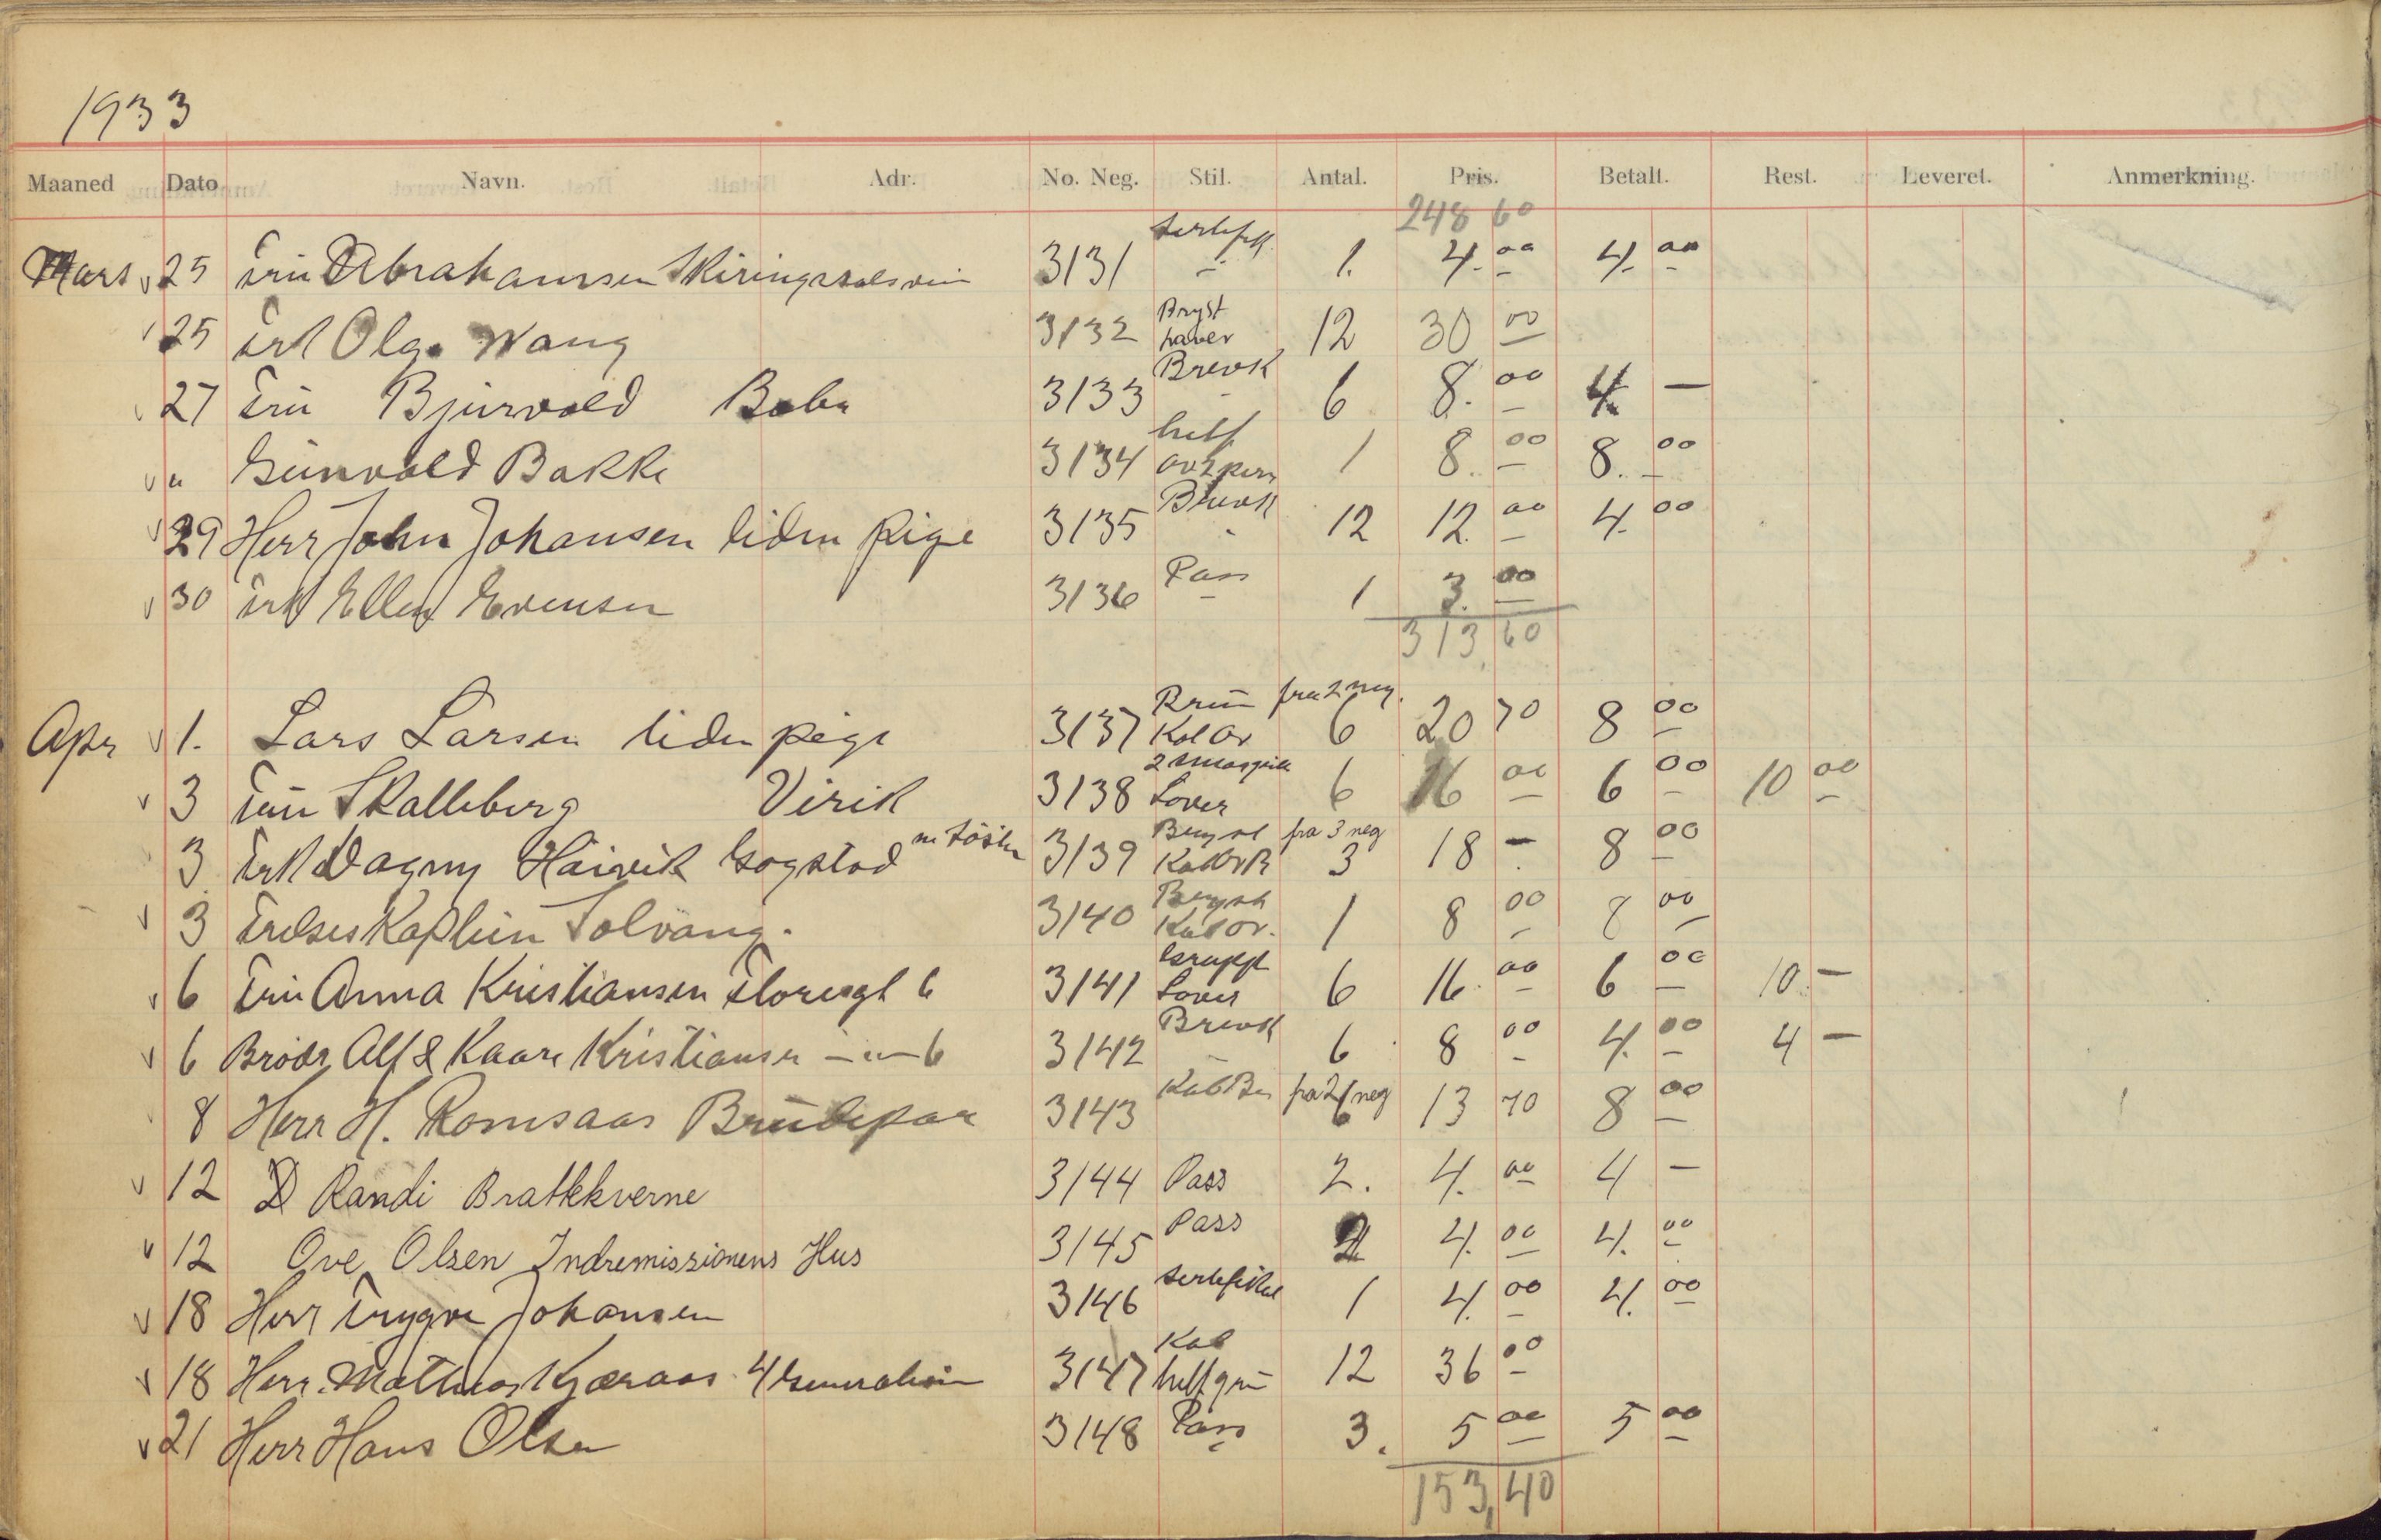 1933
Maaned Dato Navn. Adr. No. Neg. Stil. Antal. Pris. Betalt. Rest. Leveret. Anmerkning.
248 60
Mars v 25 Fru Abrahamsen Skiringssalsvein 3131 1. 4.00 4.00
v 25 Frk Olga Wang 3132 Bryst 12 30 00
v 27 Fru Bjurvold Baby 3133 Brevk 6 8.00 4. —
v " Gunvald Bakke 3134 helf av 2 pers 1 8.00 8.00
v 29 Herr John Johansen liden pige 3135 Brevk 12 12.00 4.00
v 30 Frk Ellen Evensen 3136 Pass 1 3.00
313,60
Apr v 1. Lars Larsen liden pige 3137 Kab Ov fra 2 neg. 6 20 70 8 00
v 3 Fru Skalleberg Virik 3138 2 smaapik Sover 6 16 00 6 00 10 00
3 Frk Dagny Haivik Gogstad m söster 3139 Bryst Kab Ov fra 3 neg 3 18 - 8 00
v 3 Frelseskaptein Solvang. 3140 Bryst Kab ov. 1 8 00 8 00
v 6 Fru Anna Kristiansen Floresgt 6 3141 Gruppe Sover 6 16.00 6 00 10. —
v 6 Brödr Alf & Kaare Kristiansen — " — 6 3142 Brevk 6 8 00 4.00 4 —
8 Herr H. Romsaas Brudepar 3143 fra 2 neg 6 13 70 8 00
v 12 Randi Brattekverne 3144 Pass 2. 4.00 4 —
v 12 Ove Olsen Indremissionens Hus 3145 Pass 2 4.00 4.00
v 18 Herr Trygve Johansen 3146 Sertefikat 1 4.00 4.00
v 18 Herr. Mathias Kjæraas 4 Generation 3147 Kab helf 12 36 00
v 21 Herr Hans Olsen 3148 Pass 3. 5 00 5 00
153,40